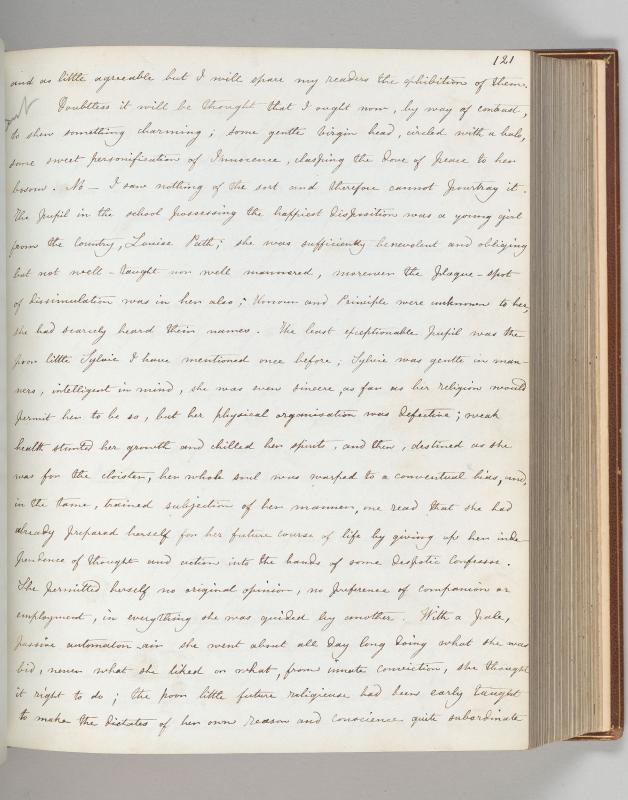 121
and as little agreeable but I will spare my readers the exhibition of them.
Doubtless it will be thought that I ought now, by way of contrast,
to shew something charming; some gentle virgin head, circled with a halo,
some sweet personification of Innocence, clasping the dove of peace to her
bosom. No — I saw nothing of the sort and therefore cannot pourtray it.
The pupil in the school possessing the happiest disposition was a young girl
from the country, Louise Path; she was sufficiently benevolent and obliging
but not well-taught nor well mannered, moreover the plague-spot
of dissimulation was in her also; Honour and Principle were unknown to her,
she had scarcely heard their names. The least exceptionable pupil was the
poor little Sylvie I have mentioned once before; Sylvie was gentle in man-
ners, intelligent in mind, she was even sincere, as far as her religion would
permit her to be so, but her physical organization was defective; weak
health stunted her growth and chilled her spirits, and then, destined as she
was for the cloister, her whole soul was warped to a conventual bias, and,
in the tame, trained subjection of her manner, one read that she had
already prepared herself for her future course of life by giving up her inde-
pendence of thought and action into the hands of some despotic confessor.
She permitted herself no original opinion, no preference of companion or
employment, in everything she was guided by another. With a pale,
passive automaton-air she went about all day long doing what she was
bid, never what she liked or what, from innate conviction, she thought
it right to do; the poor little future religieuse had been early taught
to make the dictates of her own reason and conscience quite subordinate